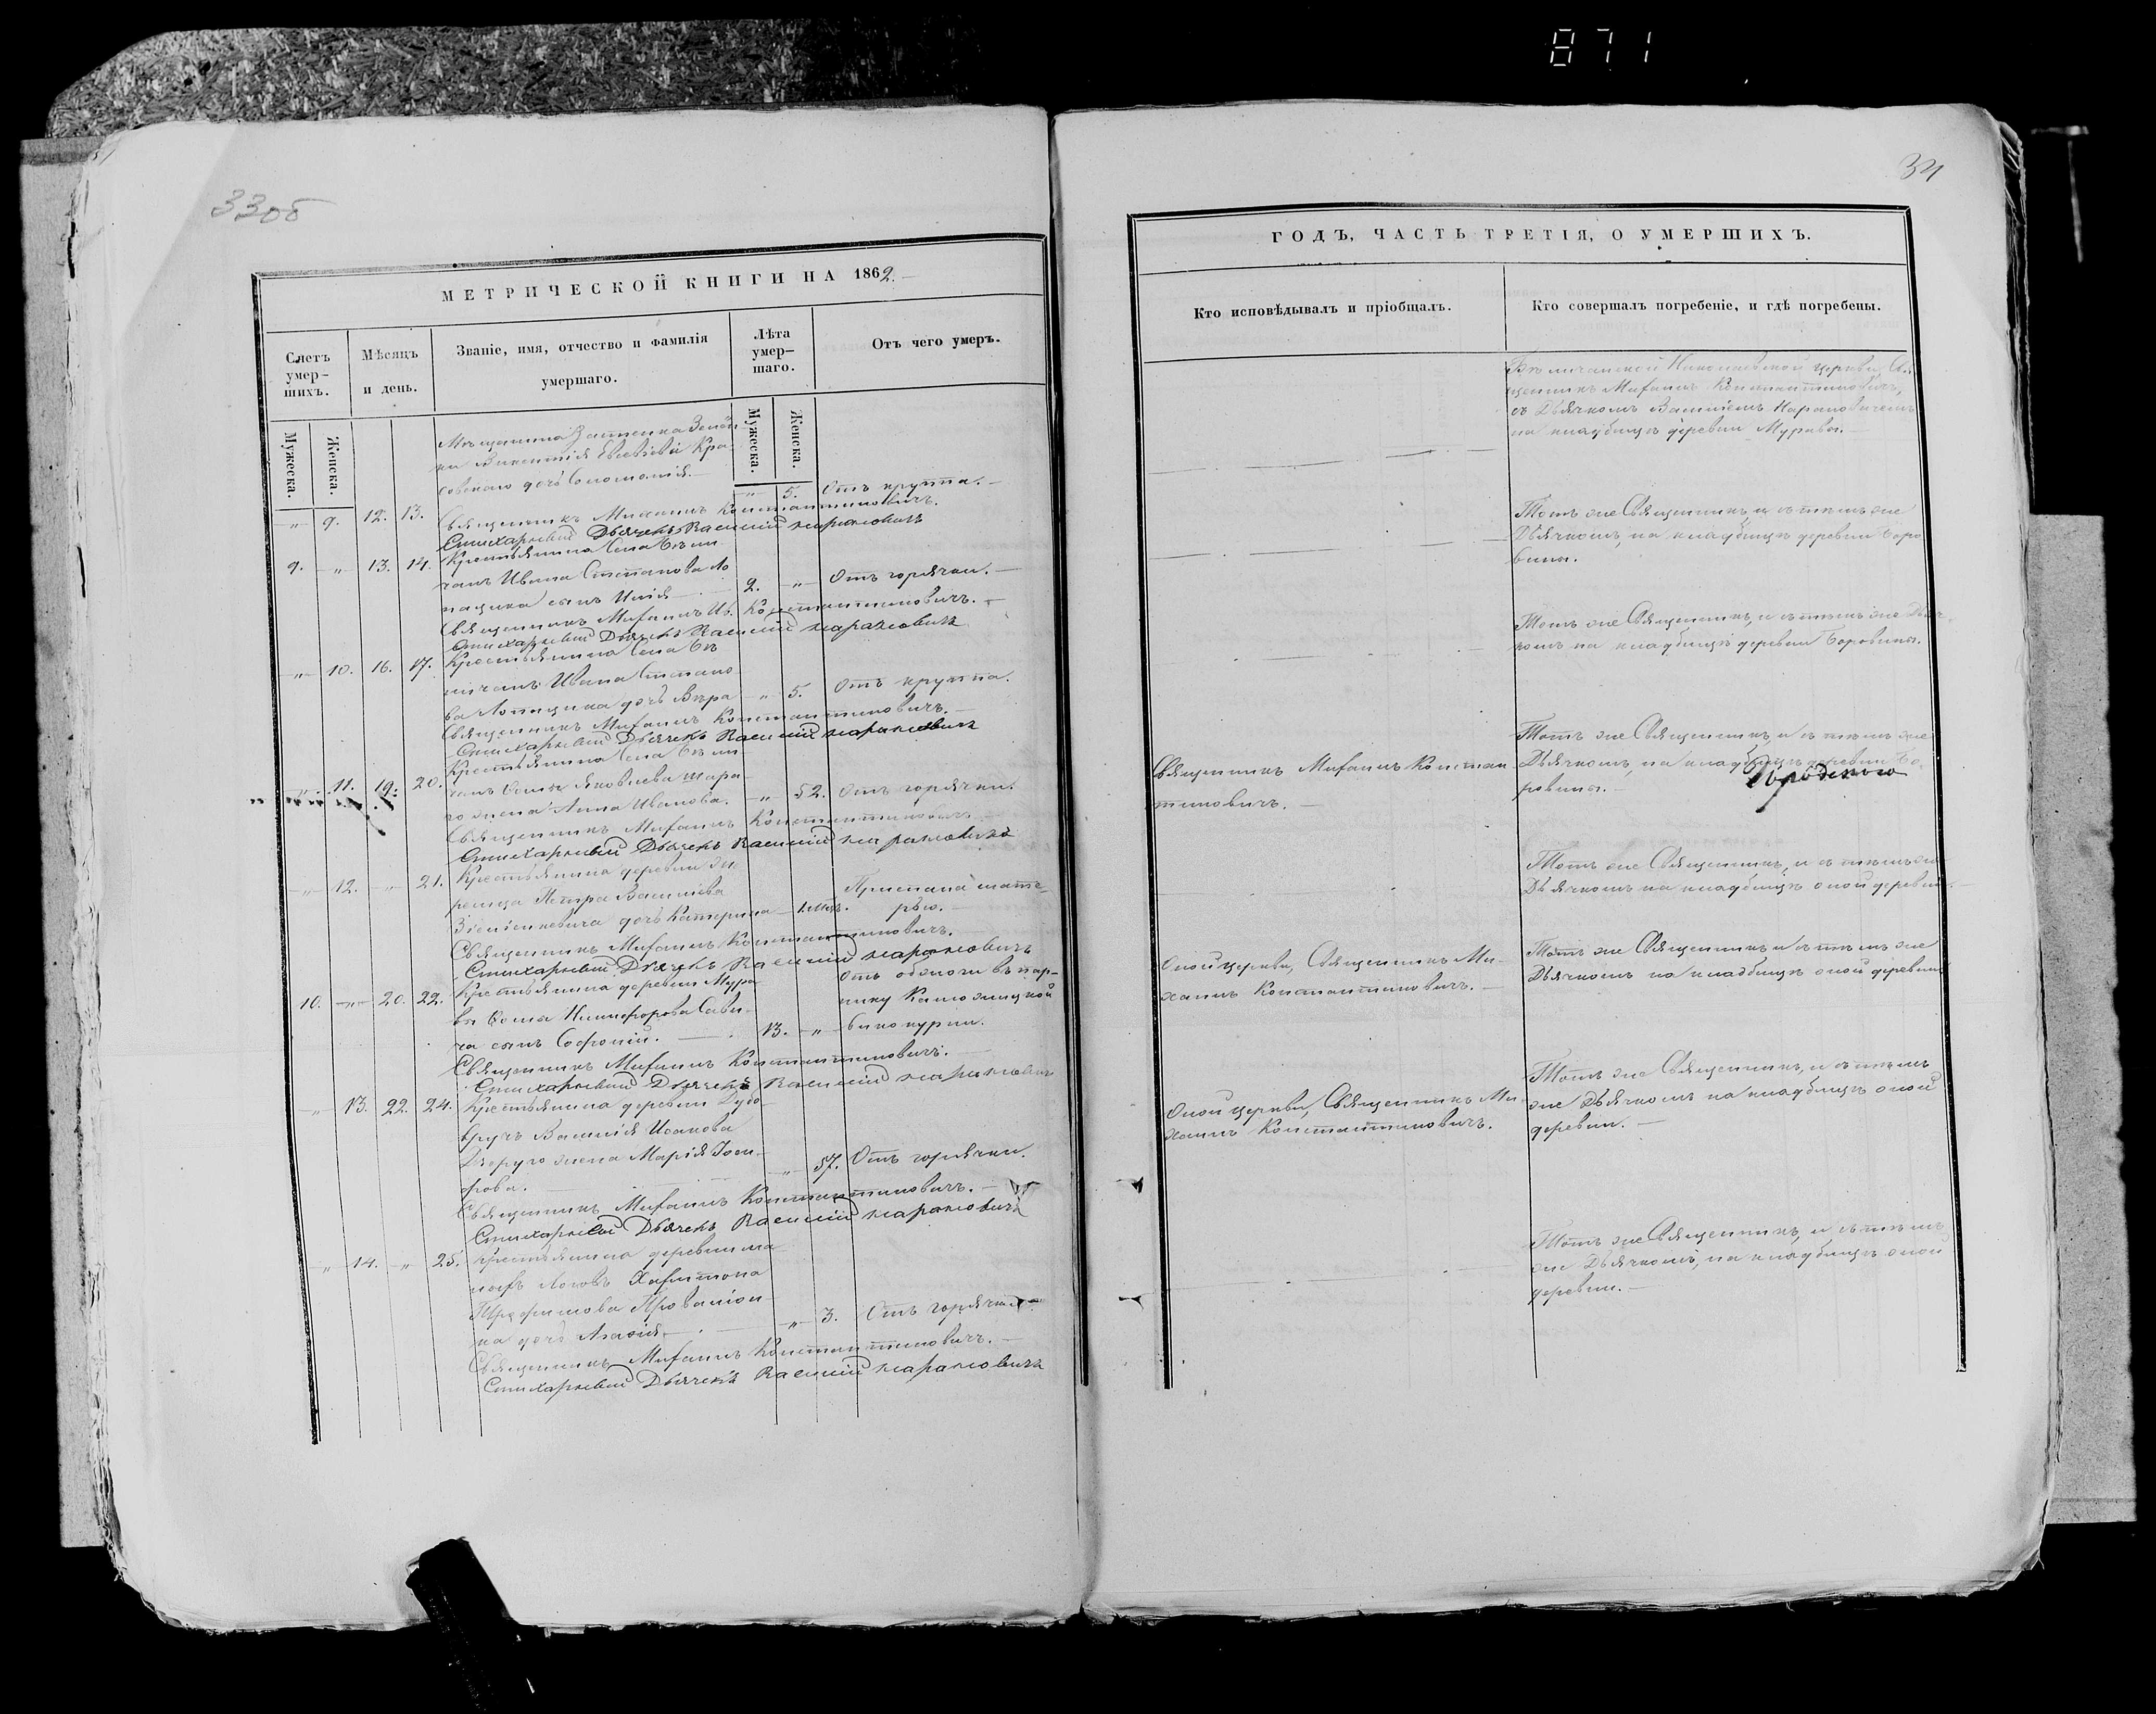 871
33об
МЕТРИЧЕСКОЙ КНИГИ НА 1862.
Счетъ умер-шихъ.
Мѣсяцъ и день.
Званіе, имя, отчество и фамилія умершаго.
Лѣта умер-шаго.
Отъ чего умеръ.
Мужеска.
Женска.
Мужеска.
Женска.
Мѣщанина
ки Викентія Кра-
совскаго дочь Соломонія.
„ 9. 12. 13. „ 5. Отъ круппа.
Священникъ Михаилъ Константиновичъ.
Стихарный Дьячекъ Василій
9. „ 13. 14. Крестьянина Села Бѣли
чанъ Ивана Степанова Ло
пацика сынъ Илія 2. „ Отъ горячки.
Священникъ Михаилъ Ив. Константиновичъ.
Стихарный Дьячекъ Василій
„ 10. 16. 17. Крестьянина Села Бѣ
личанъ Ивана Степано
ва Лопацика дочь Вѣра „ 5. Отъ круппа.
Священникъ Михаилъ Константиновичъ.
Стихарный Дьячекъ Василій
„ 11. 19. 20. Крестьянина Села Бѣли
чанъ Яковлева
го жена Анна Иванова. „ 52. Отъ горячки.
Священникъ Михаилъ Константиновичъ.
Стихарный Дьячекъ Василій
„ 12. „ 21. Крестьянина деревни
Петра Васильева
дочь Катерина
Священникъ Михаилъ Константиновичъ.
Стихарный Дьячекъ Василій
10. „ 20. 22. Крестьянина деревни Мура
вы Фомы Никифорова Сави-
ча сынъ Софроній. 13. „
Отъ обжоги въ пар-
нику
винокурни.
Священникъ Михаилъ Константиновичъ.
Стихарный Дьячекъ Василій
„ 13. 22. 24. Крестьянина деревни Дубо
вручъ Василія Исакова
жена Марія
„ 57. Отъ горячки.
Священникъ Михаилъ Константиновичъ.
Стихарный Дьячекъ Василій
„ 14. „ 25. Крестьянина деревни Ма
лыхъ Харитона
Трофимова
на дочь Агафія „ 3. Отъ горячки.
Священникъ Михаилъ Константиновичъ.
Стихарный Дьячекъ Василій
34
ГОДЪ, ЧАСТЬ ТРЕТІЯ, О УМЕРШИХЪ.
Кто исповѣдывалъ и пріобщалъ.
Кто совершалъ погребеніе, и гдѣ погребены.
Бѣличанской Николаевской церкви Свя-
щенникъ Михаилъ Константиновичъ,
съ Дьячкомъ Василіемъ
на кладбищѣ деревни Муравы.
Тотъ же Священникъ, и съ тѣмъ же
Дьячкомъ, на кладбищѣ деревни Боро
вины.
Тотъ же Священникъ, и съ тѣмъ же Дьяч-
комъ на кладбищѣ деревни Боровины.
Священникъ Михаилъ Констан
тиновичъ.
Тотъ же Священникъ, и съ тѣмъ же
Дьячкомъ, на кладбищѣ деревни Бо-
ровины.
Тотъ же Священникъ, и съ тѣмъ же
Дьячкомъ на кладбищѣ оной деревни.
Оной церкви, Священникъ Ми-
хаилъ Константиновичъ.
Тотъ же Священникъ и съ тѣмъ же
Дьячкомъ на кладбищѣ оной деревни.
Оной церкви, Священникъ Ми-
хаилъ Константиновичъ.
Тотъ же Священникъ, и съ тѣмъ
же Дьячкомъ на кладбищѣ оной
деревни.
Тотъ же Священникъ, и съ тѣмъ
же Дьячкомъ, на кладбищѣ оной
деревни.